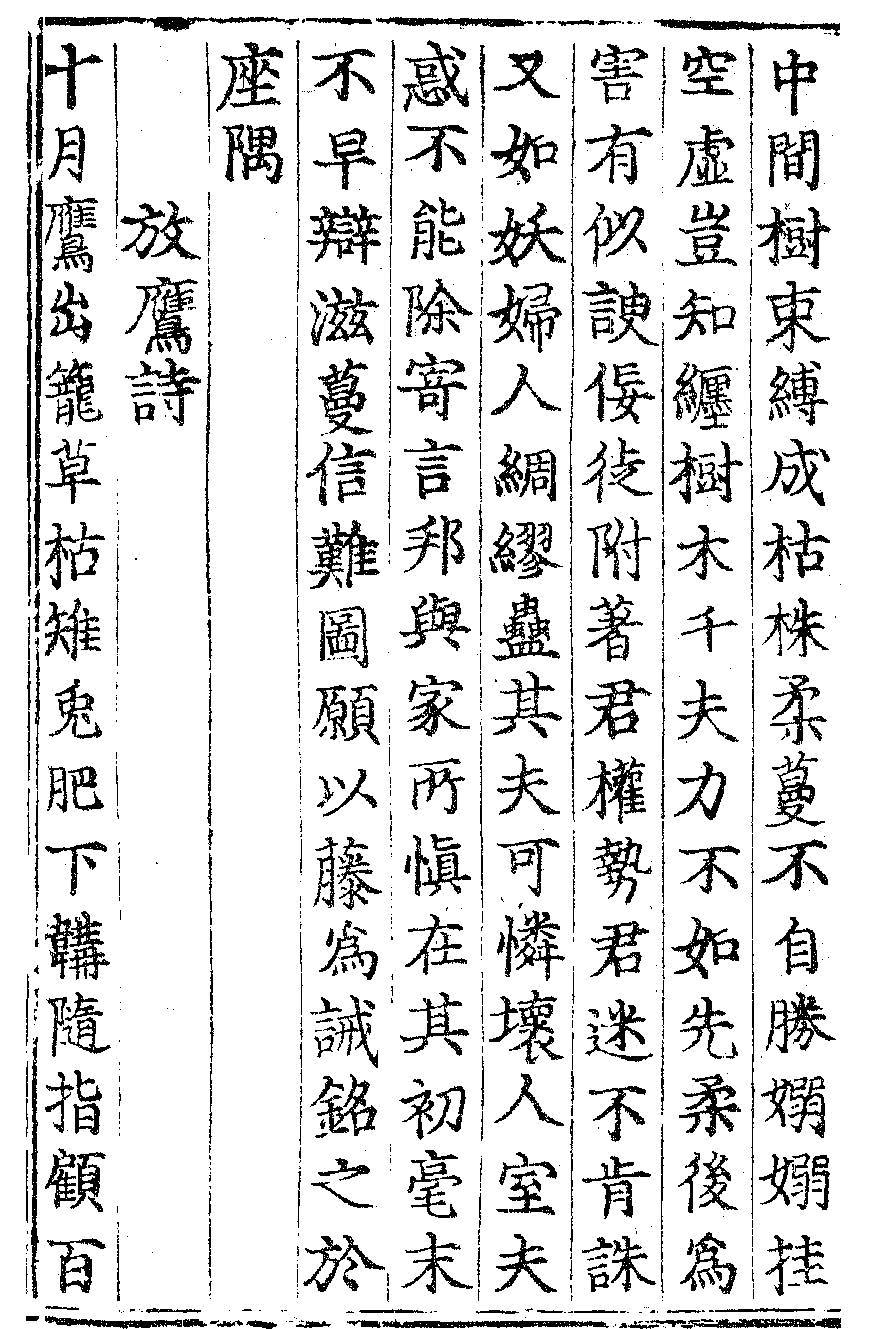 中間樹束縛成枯株柔蔓不自勝嫋嫋挂
空虛豈知纒樹木千夫力不如先柔後為
害有似諛佞徒附著君權勢君迷不肯誅
又如妖婦人綢繆蠱其夫可憐壞人室夫
惑不能除寄言邦與家所慎在其初毫末
不早辯滋蔓信難圖願以藤為誡銘之於
座隅
放鷹詩
十月鷹出籠草枯雉兔肥下鞲隨指顧百